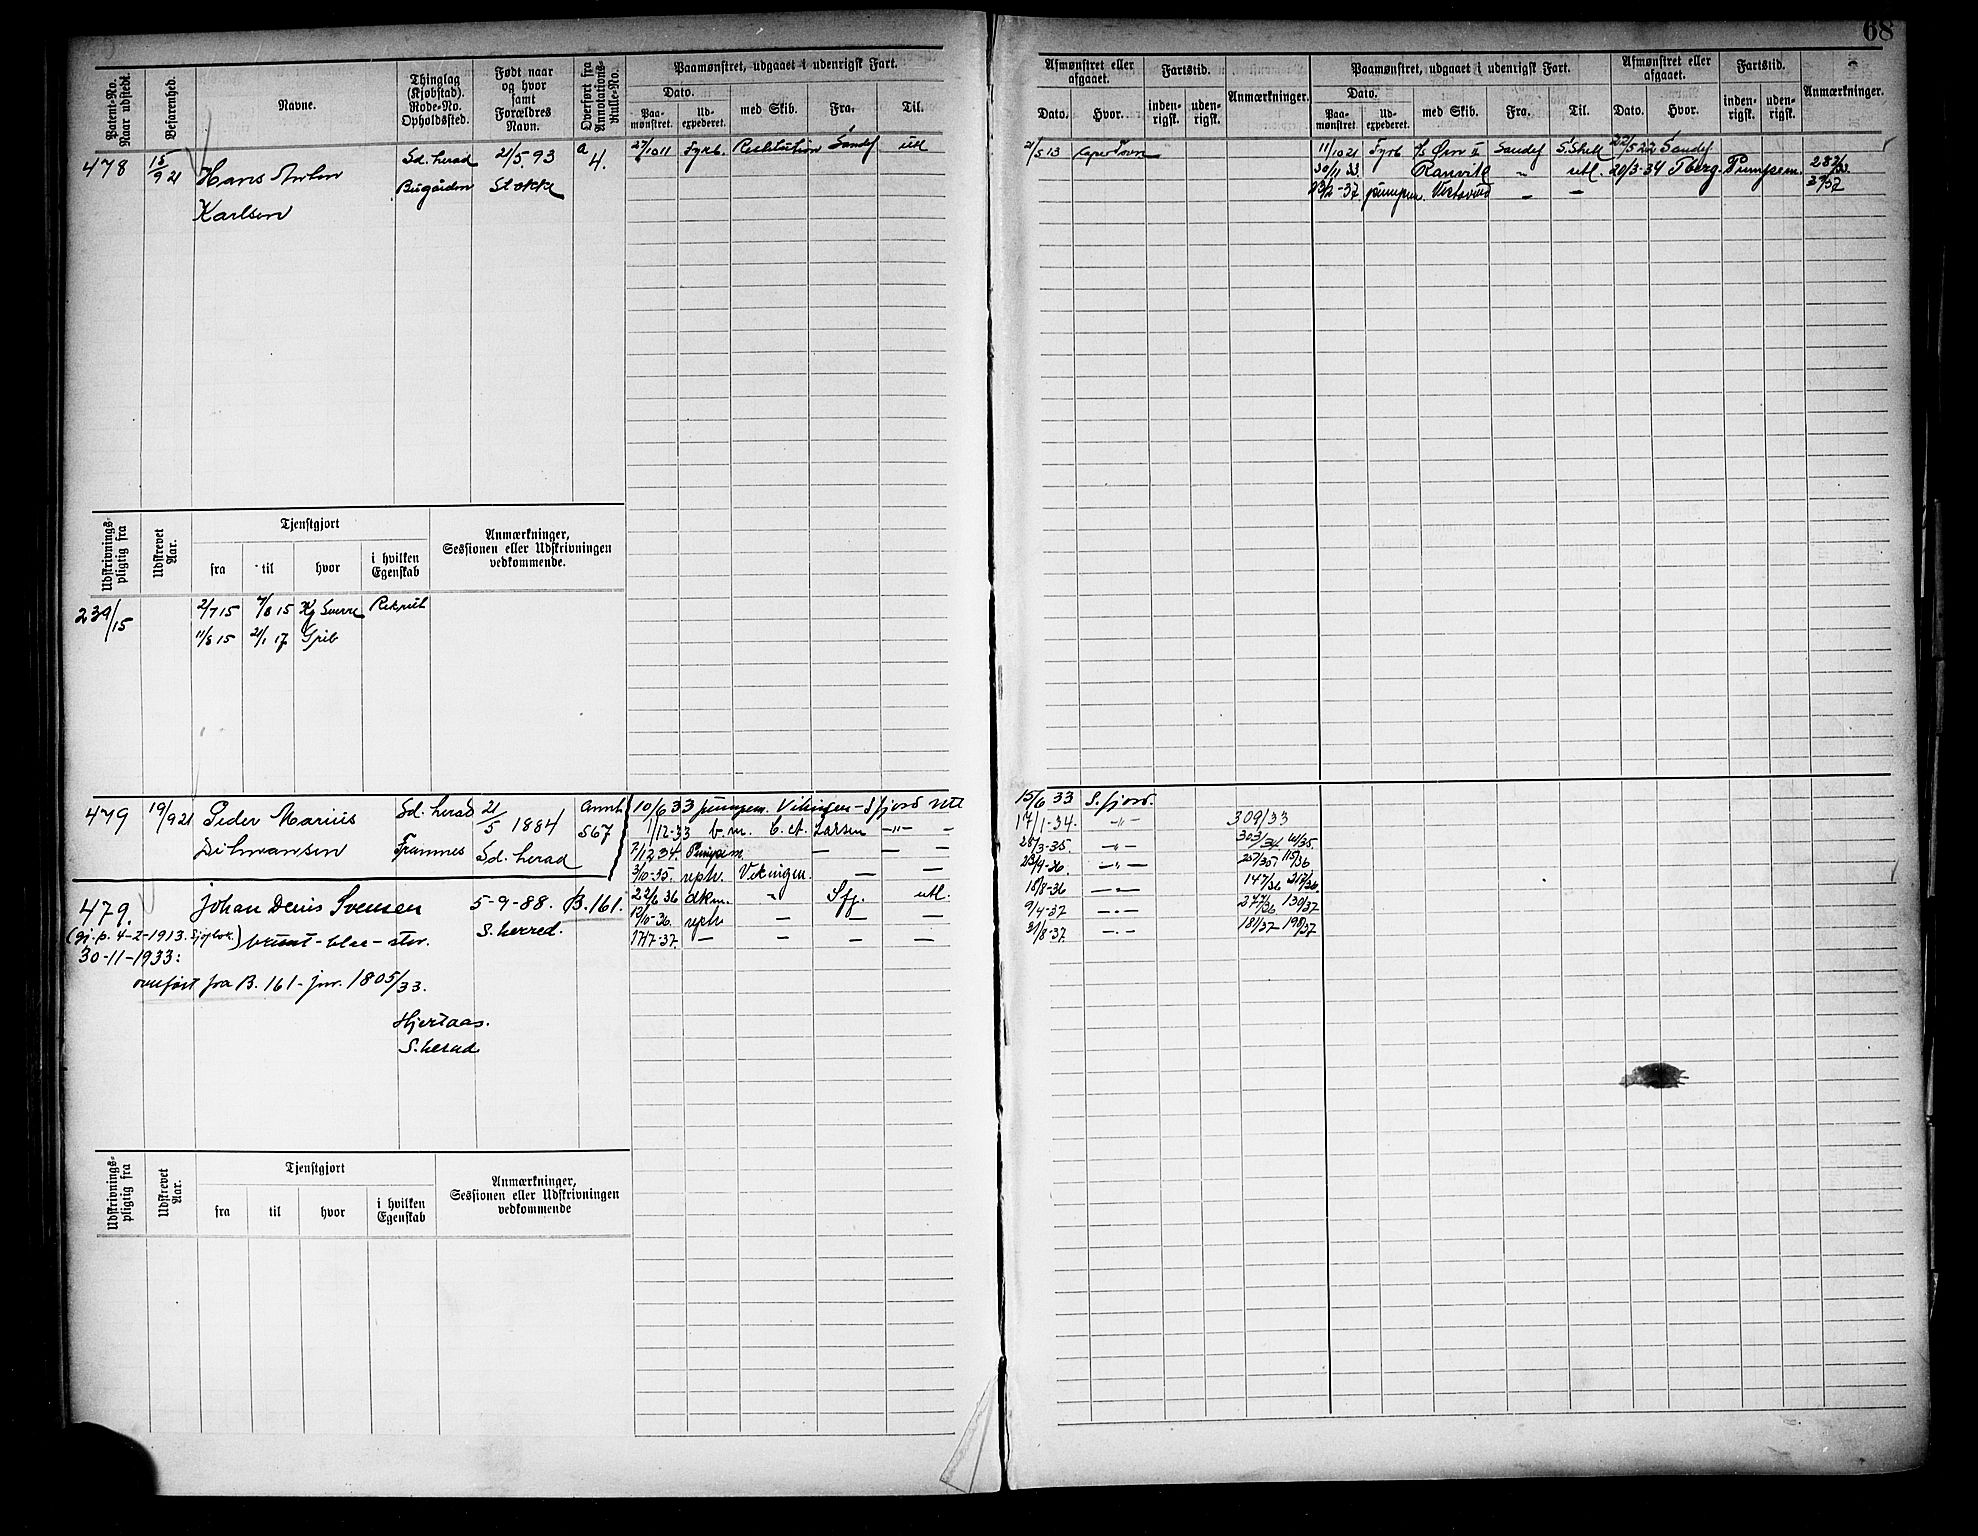 68
Patent-No. Naar udstedt.
Befarenhed.
Navne.
Thinglag (Kjøbstad). Rode-No. Opholdssted.
Født naar og hvor samt Forældres Navn.
Overført fra Annotations-Rulle-No.
Paamønstret, udgaaet i udenrigsk Fart.
Dato.
Paa-mønstret.
Ud-expederet.
med Skib.
Fra.
Til.
478
15/9 21
Hans Anton
Karlsen
Sd. herad
Bugården
21/5 93
Stokke
a 4.
27/10 11 Fyrb. Restitution Sandef utl
Udskrivnings-pligtig fra
Udskrevet Aar.
Tjenstgjort
fra
til
hvor
i hvilken Egenskab
Anmærkninger, Sessionen eller Udskrivningen vedkommende.
239/15
2/7 15 7/8 15 Kg Sverre Rekrut
11/8 15 21/1 17 Grib
479 19/9 21 Peder Marius
Sd. herad
Framnes
21/5 1884
Sd. herad
Annt.
567
10/6 33 pumpem. Vikingen - S fjord utl
1/12-33 b.m. C. A. Larsen -"- -
7/12 34. Pumpem - - -
3/10-35. reptr. Vikingen. - -
479.
Johan Denis Svensen
5-9-88. B. 161.
S. herred.
22/6 36 dkm. " Sfj. utl.
12/10-36. reptr - - -
17/7-37. - - - -
(gj.p. 4-2-1913. Sjøfbok.) brunt - blae - stor.
30-11-1933:
overført fra B. 161 - jnr. 1805/33.
Hjertaas.
S. herad
Udskrivnings-pligtig fra
Udskrevet Aar.
Tjenstgjort
fra
til
hvor
i hvilken Egenskab
Anmærkninger, Sessionen eller Udskrivningen vedkommende
Afmønstret eller afgaaet.
Dato.
Hvor.
Fartstid.
inden-rigsk.
uden-rigsk.
Anmærkninger.
Paamønstret, udgaaet i udenrigsk Fart.
Dato.
Paa-mønstret
Ud-expederet.
med Skib.
Fra.
Til.
Afmønstret eller afgaaet.
Dato.
Hvor.
Fartstid.
inden-rigsk.
uden-rigsk.
Anmærkninger.
21/5 13 Cape Town
11/10 21 Fyrb S/s Ørn II Sandef S. Shetl 22/5 22 Sandef
30/11 33. Ranvik " utl. 20/3-34 Tberg. Pumpem. 282/33.
23/2-37. pumpem. - - 39/37
15/6 33 S. fjord.
17/1-34. -"- 309/33
28/3-35. -"- 303/34.
23/4-36. -"- 257/35 115/36
18/8-36 -"- 147/36 217/36.
9/4-37 -"- 277/36 130/37
31/8-37. -"- 181/37-198/37